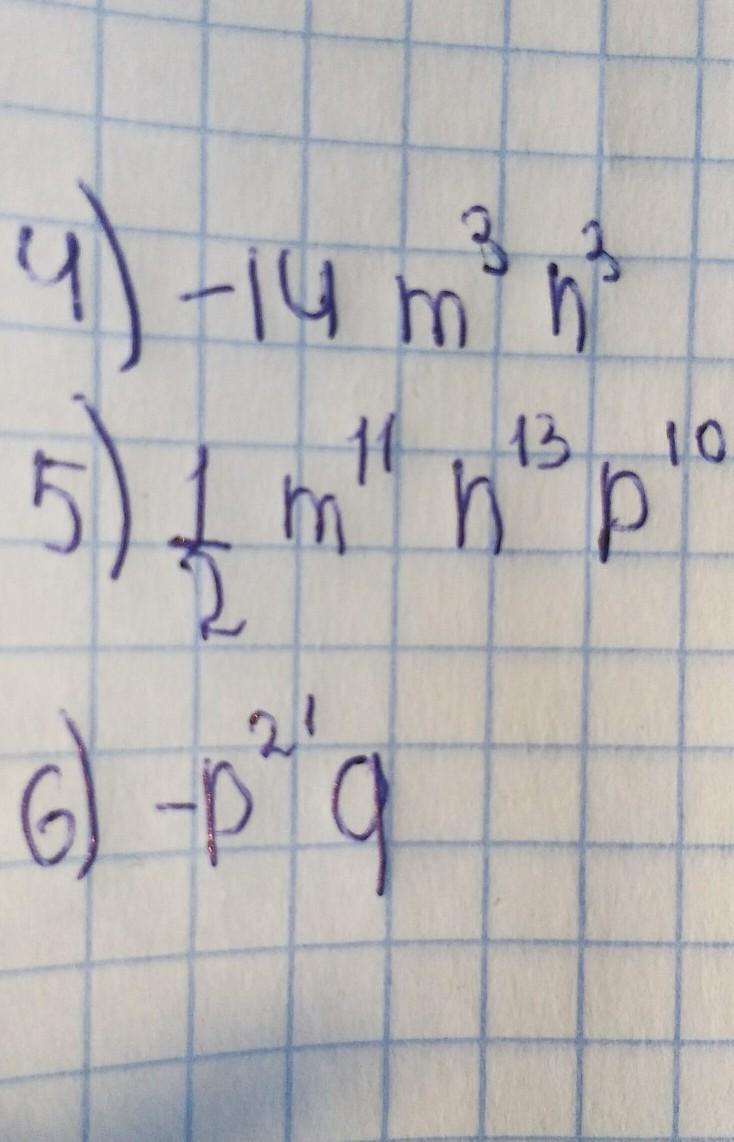 4) -14 m³ n³
5) 1/2 m¹¹ n¹³ p¹⁰
6) -p²¹ q